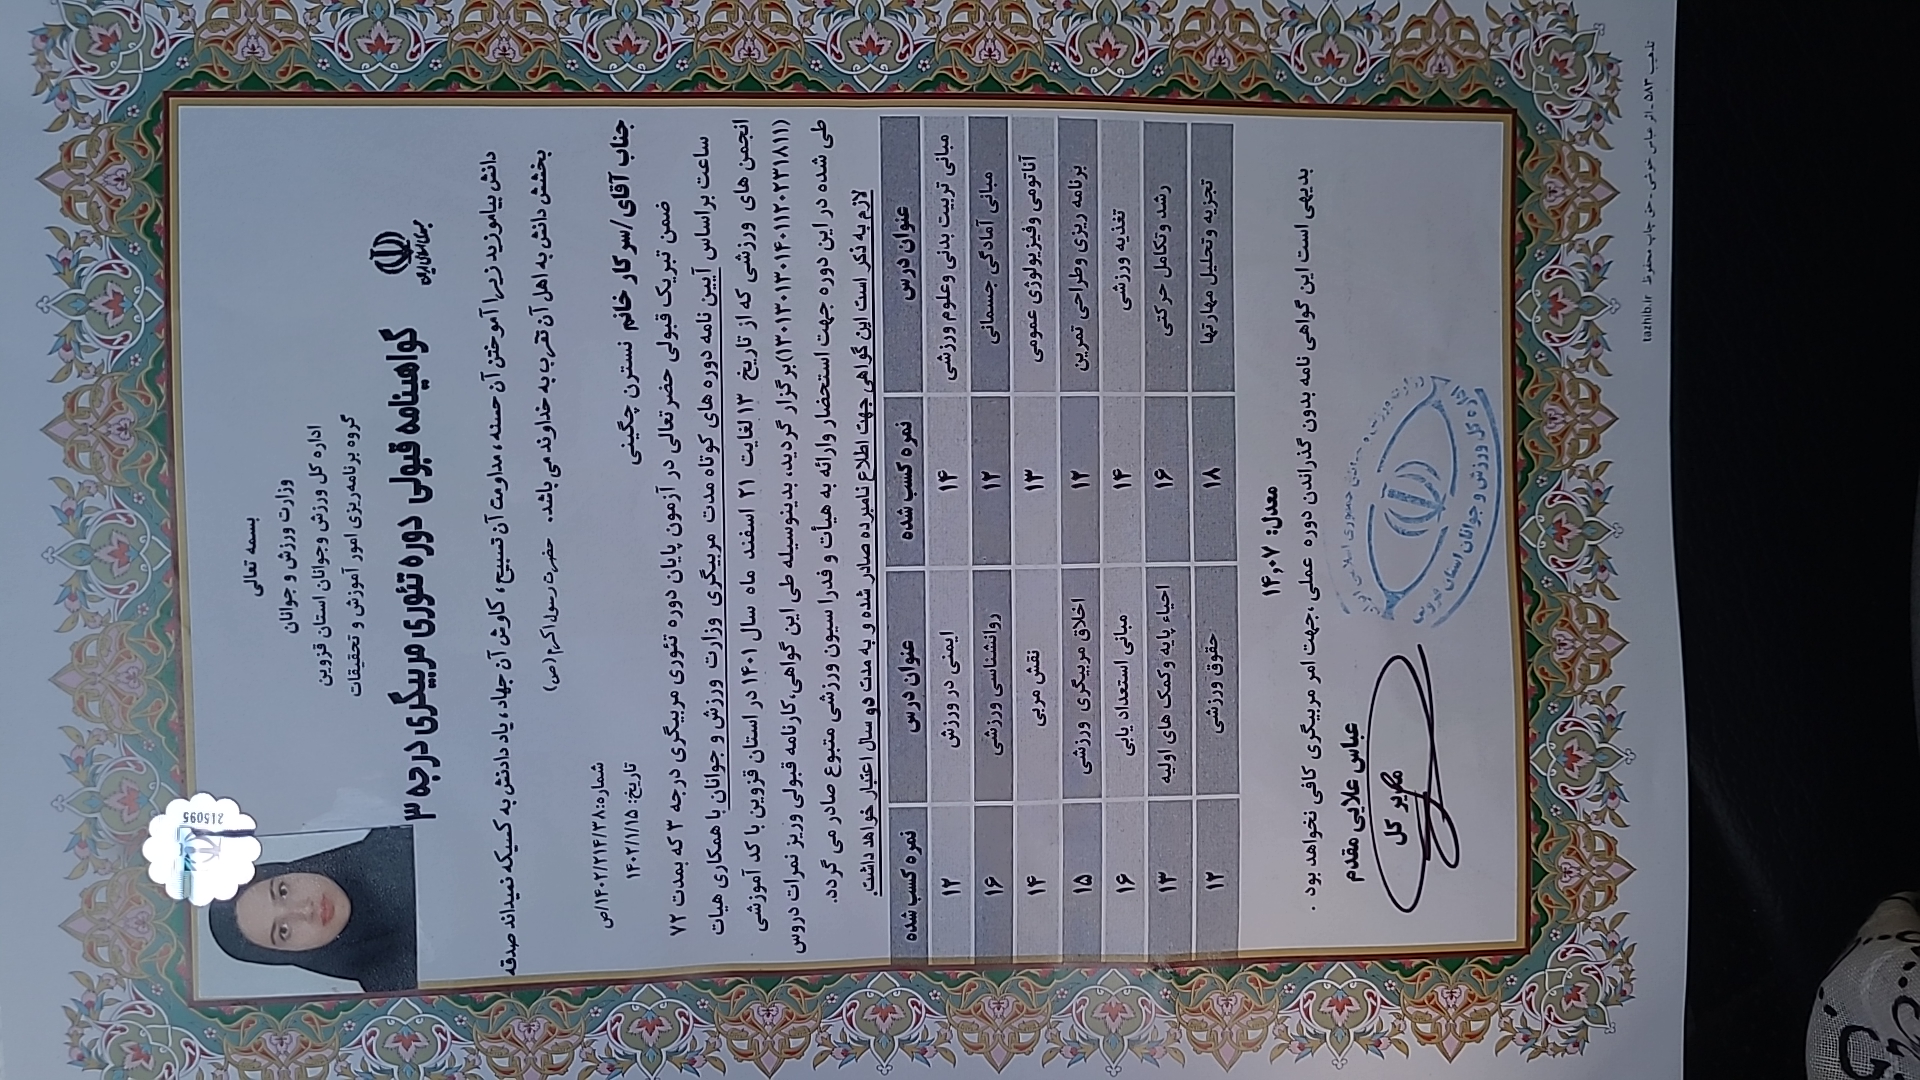 بسمه تعالی
وزارت ورزش و جوانان
اداره کل ورزش و جوانان استان قزوین
گروه برنامه‌ریزی امور آموزش و تحقیقات
جمهوری اسلامی ایران
215095
گواهینامه قبولی دوره تئوری مربیگری درجه ۳
دانش بیاموزید زیرا آموختن آن حسنه، مداومت آن تسبیح، کاوش آن جهاد، یاد دادنش به کسیکه نمیداند صدقه
بخشش دانش به اهل آن تقرب به خداوند می‌باشد. حضرت رسول اکرم (ص)
شماره: ۱۴۰۲/۲۱۴/۳۸/ص
تاریخ: ۱۴۰۲/۱/۱۵
جناب آقای/سرکار خانم نسترن چگینی
ضمن تبریک قبولی حضرتعالی در آزمون پایان دوره تئوری مربیگری درجه ۳ که بمدت ۷۲
ساعت براساس آیین نامه دوره های کوتاه مدت مربیگری وزارت ورزش و جوانان با همکاری هیات
انجمن های ورزشی که از تاریخ ۱۳ لغایت ۲۱ اسفند ماه سال ۱۴۰۱ در استان قزوین با کد آموزشی
(۱۳۰۱۳۰۱۳۰۱۴۰۱۱۲۰۲۳۱۸۱۱) برگزار گردید، بدینوسیله طی این گواهی، کارنامه قبولی وریز نمرات دروس
طی شده در این دوره جهت استحضار وارائه به هیأت و فدراسیون ورزشی متبوع صادر می گردد.
لازم به ذکر است این گواهی جهت اطلاع نامبرده صادر شده و به مدت دو سال اعتبار خواهد داشت.
عنوان درس نمره کسب شده عنوان درس نمره کسب شده
مبانی تربیت بدنی وعلوم ورزشی ۱۴ ایمنی در ورزش ۱۲
مبانی آمادگی جسمانی ۱۲ روانشناسی ورزشی ۱۶
آناتومی وفیزیولوژی عمومی ۱۳ نقش مربی ۱۴
برنامه ریزی وطراحی تمرین ۱۲ اخلاق مربیگری ورزشی ۱۵
تغذیه ورزشی ۱۴ مبانی استعدادیابی ۱۶
رشد وتکامل حرکتی ۱۶ احیاء پایه وکمک های اولیه ۱۳
تجزیه وتحلیل مهارتها ۱۸ حقوق ورزشی ۱۲
معدل: ۱۴,۰۷
بدیهی است این گواهی نامه بدون گذراندن دوره عملی ،جهت امر مربیگری کافی نخواهد بود .
عباس علایی مقدم
مدیر کل
اداره کل ورزش و جوانان استان قزوین
تذهیب ۵۸۳ - اثر عباس خوشی - حق چاپ محفوظ tazhib.ir